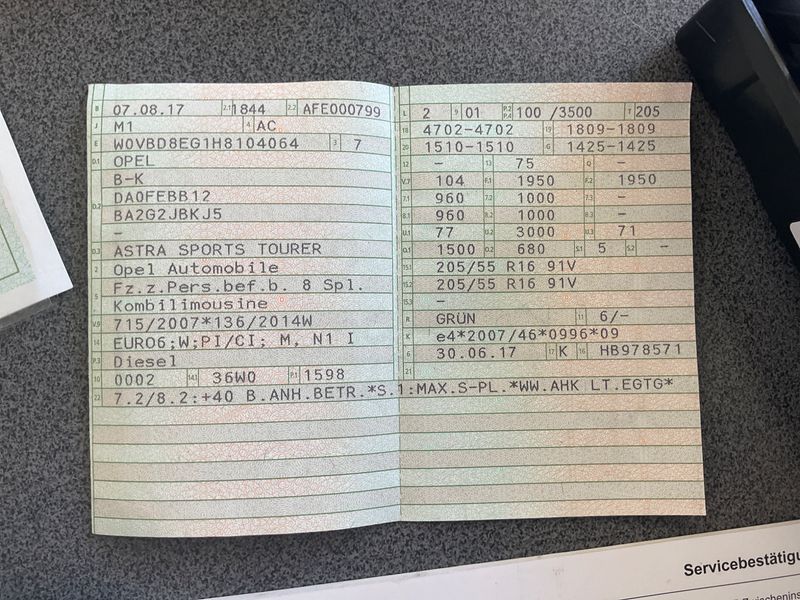 B 07.08.17 2.1 1844 2.2 AFE000799
J M1 4 AC
E W0VBD8EG1H8104064 3 7
D.1 OPEL
B-K
D.2 DA0FEBB12
BA2G2JBKJ5
–
D.3 ASTRA SPORTS TOURER
2 Opel Automobile
5 Fz.z.Pers.bef.b. 8 Spl.
Kombilimousine
V.9 715/2007*136/2014W
14 EURO6;W;PI/CI; M, N1 I
P.3 Diesel
10 0002 14.1 36W0 P.1 1598
22 7.2/8.2:+40 B.ANH.BETR.*S.1:MAX.S-PL.*WW.AHK LT.EGTG*
L 2 9 01 P.2 P.4 100 /3500 T 205
18 4702-4702 19 1809-1809
20 1510-1510 G 1425-1425
12 – 13 75 Q –
V.7 104 F.1 1950 F.2 1950
7.1 960 7.2 1000 7.3 –
8.1 960 8.2 1000 8.3 –
U.1 77 U.2 3000 U.3 71
O.1 1500 O.2 680 S.1 5 S.2 –
15.1 205/55 R16 91V
15.2 205/55 R16 91V
15.3 –
R GRÜN 11 6/–
K e4*2007/46*0996*09
6 30.06.17 17 K 16 HB978571
21
Servicebestätigu